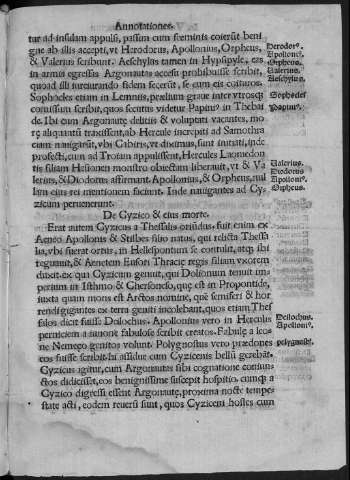 Annotationes.
tur ad insulam appulsi, passim cum fœminis coierūt beni
gne ab illis accepti, vt Herodorus, Apollonius, Orpheus,
& Valerius scribunt. Aeschylus tamen in Hypsipyle, eas
in armis egressas Argonautas accessu prohibuisse scribit,
quoad illi iureiurando fidem fecerūt, se cum eis coituros.
Sophocles etiam in Lemniis, prælium graue inter vtrosq;
comissum scribit, quos secutus videtur Papiniꝰ in Thebai
de. Ibi cum Argonautæ delitiis & voluptati vacantes, mo
rę aliquantū traxissent, ab Hercule increpiti ad Samothra
ciam nauigarūt, vbi Cibiris, vt diximus, sunt initiati, inde
profecti, cum ad Troiam appulissent, Hercules Laomedon
tis filiam Hesionen monstro obiectam liberauit, vt & Va
lerius, & Diodorus affirmant. Apollonius, & Orpheus, nul
lam eius rei mentionem faciunt. Inde nauigantes ad Cy
zicum peruenerunt.
De Cyzico & eius morte.
Erat autem Cyzicus a Thessalis oriūdus, fuit enim ex
Aeneo Apollonis & Stilbes filio natus, qui relicta Thessa
lia, vbi fuerat ortus, in Hellespontum se cōtulit, atq; ibi
regnauit, & Aenetem Eusori Thraciæ regis filiam vxorem
duxit, ex qua Cyzicum genuit, qui Dolionum tenuit im
perium in Isthmo & Chersoneso, quę est in Propontide,
iuxta quam mons est Arctos nomine, quē semiferi & hor
rendi gigātes ex terra geniti incolebant, quos etiam Thes
salos dicit fuisse Deilochus. Apollonius vero in Herculis
perniciem a Iunone fabulose scribit creatos. Fabulę a leo
ne Nemeęo genitos volunt. Polygnostus vero prædones
eos fuisse scribit. hi assidue cum Cyzicenis bellū gerebāt.
Cyzicus igitur, cum Argonautas sibi cognatione coniun
ctos didicisset, eos benignissime suscepit hospitio. cumq; a
Cyzico digressi essent Argonautę, proxima nocte tempe
state acti, eodem reuersi sunt, quos Cyziceni hostes cum
Herodorꝰ.
Apolloniꝰ.
Orpheus.
Valerius.
Aeschylus.
Sophocles
Papiniꝰ.
Valerius.
Diodorus
Apolloniꝰ.
Orpheus.
Deilochus.
Apolloniꝰ.
polygnostꝰ.